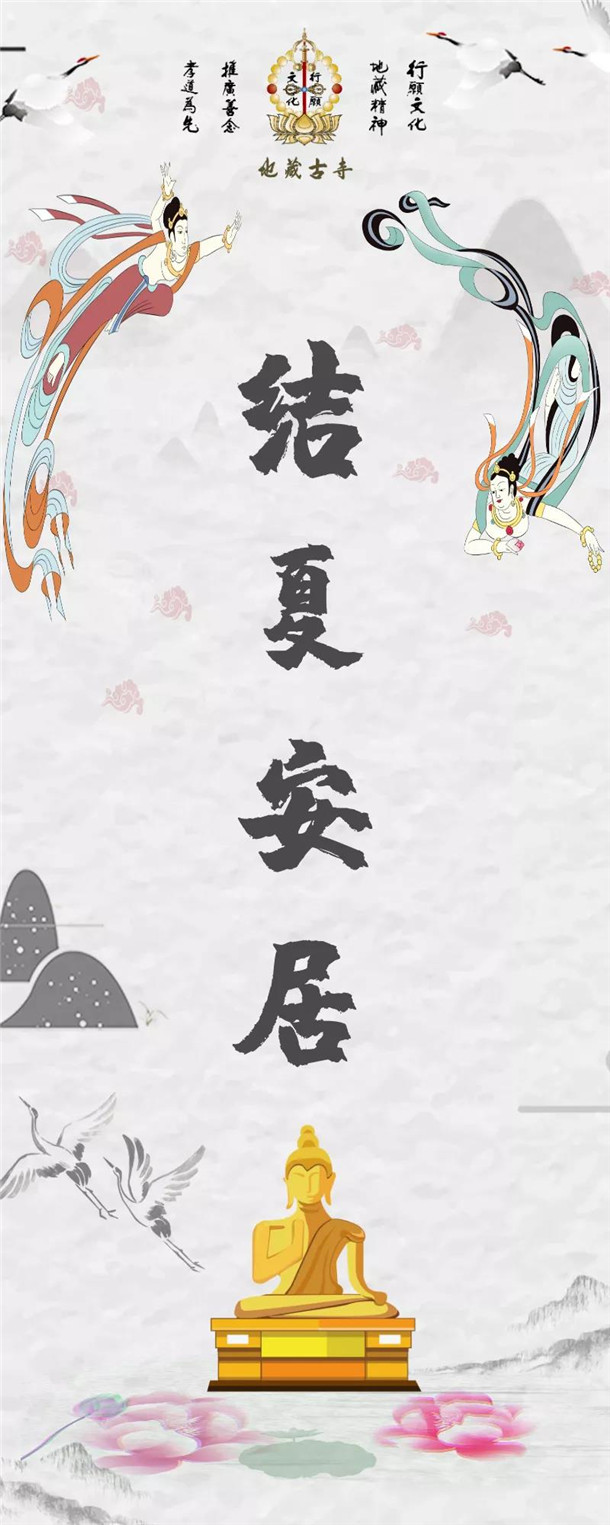 行願文化
地藏精神
推廣善念
孝道為先
行願
文化
地藏古寺
结
夏
安
居